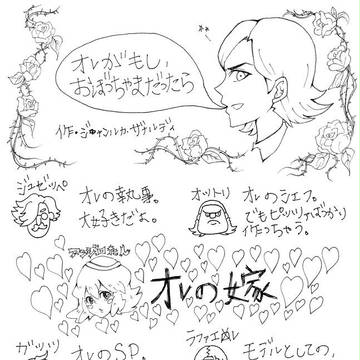 オレがもし、
おぼっちゃまだったら
作・ジャンルカ・ザナルディ
ジュゼッペ
オレの執事。
大好きだよ。
オットリ
オレのシェフ。
でもピッツァばっかり
作っちゃう。
オレの嫁
ガッツ
オレのSP。
ラファエル
モデルとしての、